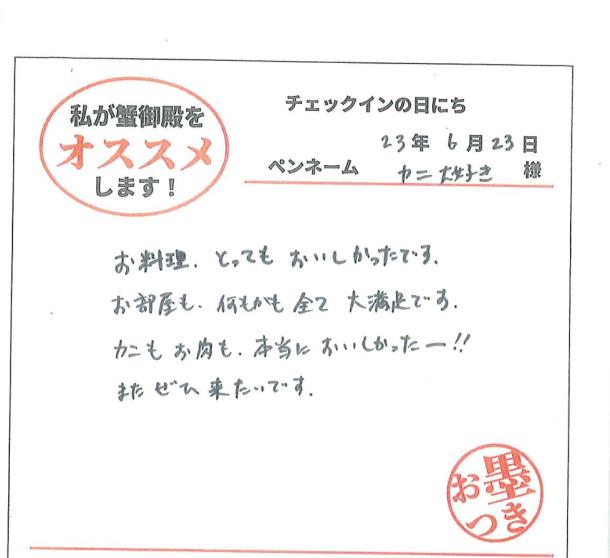 私が蟹御殿を
オススメ
します！
チェックインの日にち
23年 6月23日
ペンネーム カニ大好き 様
お料理、とっても おいしかったです。
お部屋も、何もかも全て 大満足です。
カニも お肉も、本当に おいしかったー!!
また ぜひ 来たいです。
お墨
つき